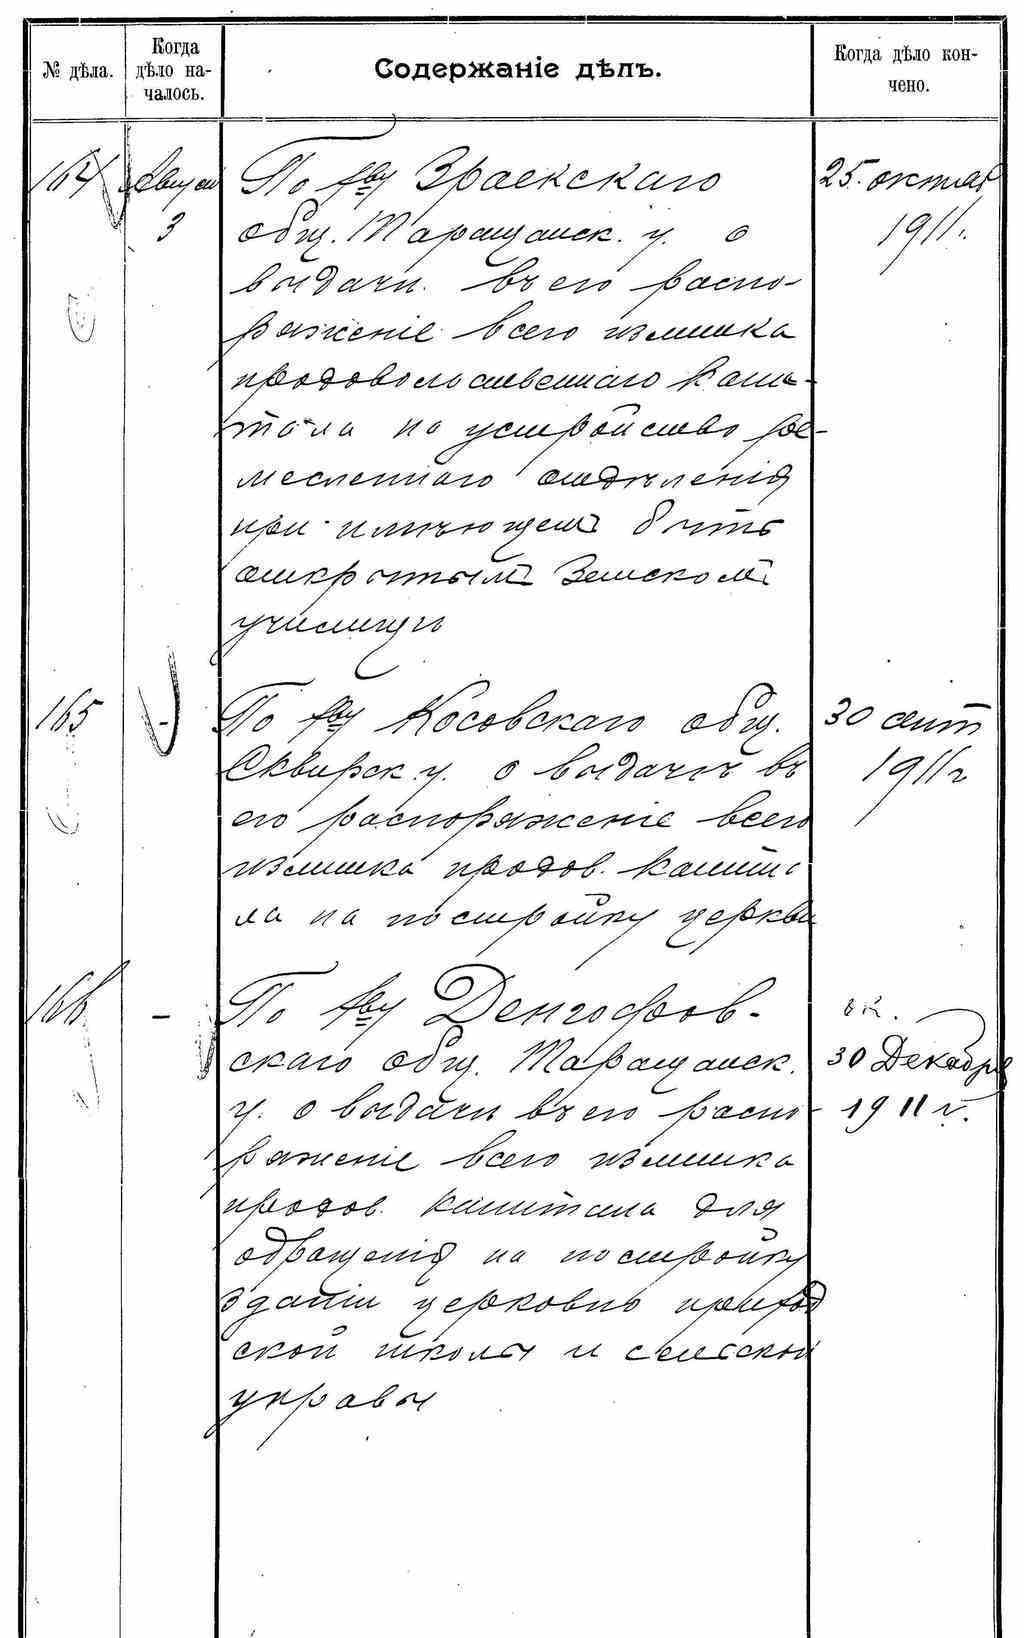 № дѣла.
Когда дѣло на-
чалось.
Содержаніе дѣлъ.
Когда дѣло кон-
чено.
164
Август
3
По хву Зраекскаго
общ. Таращанск. у. о
выдачи въ его распо-
ряженіе всего излишка
продовольственнаго капи-
тала на устройство ре-
месленнаго отдѣленія
при имѣющемъ быть
открытымъ Земскомъ
училищѣ
25. октяб
1911г.
165
-
По хву Косовскаго общ.
Сквирск. у. о выдачѣ въ
его распоряженіе всего
излишка продов. капита
ла на постройку церкви
30 сент
1911 г
166
-
По хву Денгофов-
скаго общ. Таращанск.
у. о выдачи въ его распо-
ряженіе всего излишка
продов. капитала для
обращенія на постройку
зданіи церковно приход
ской школы и сельской
управы
ок.
30 Декабря
1911 г.